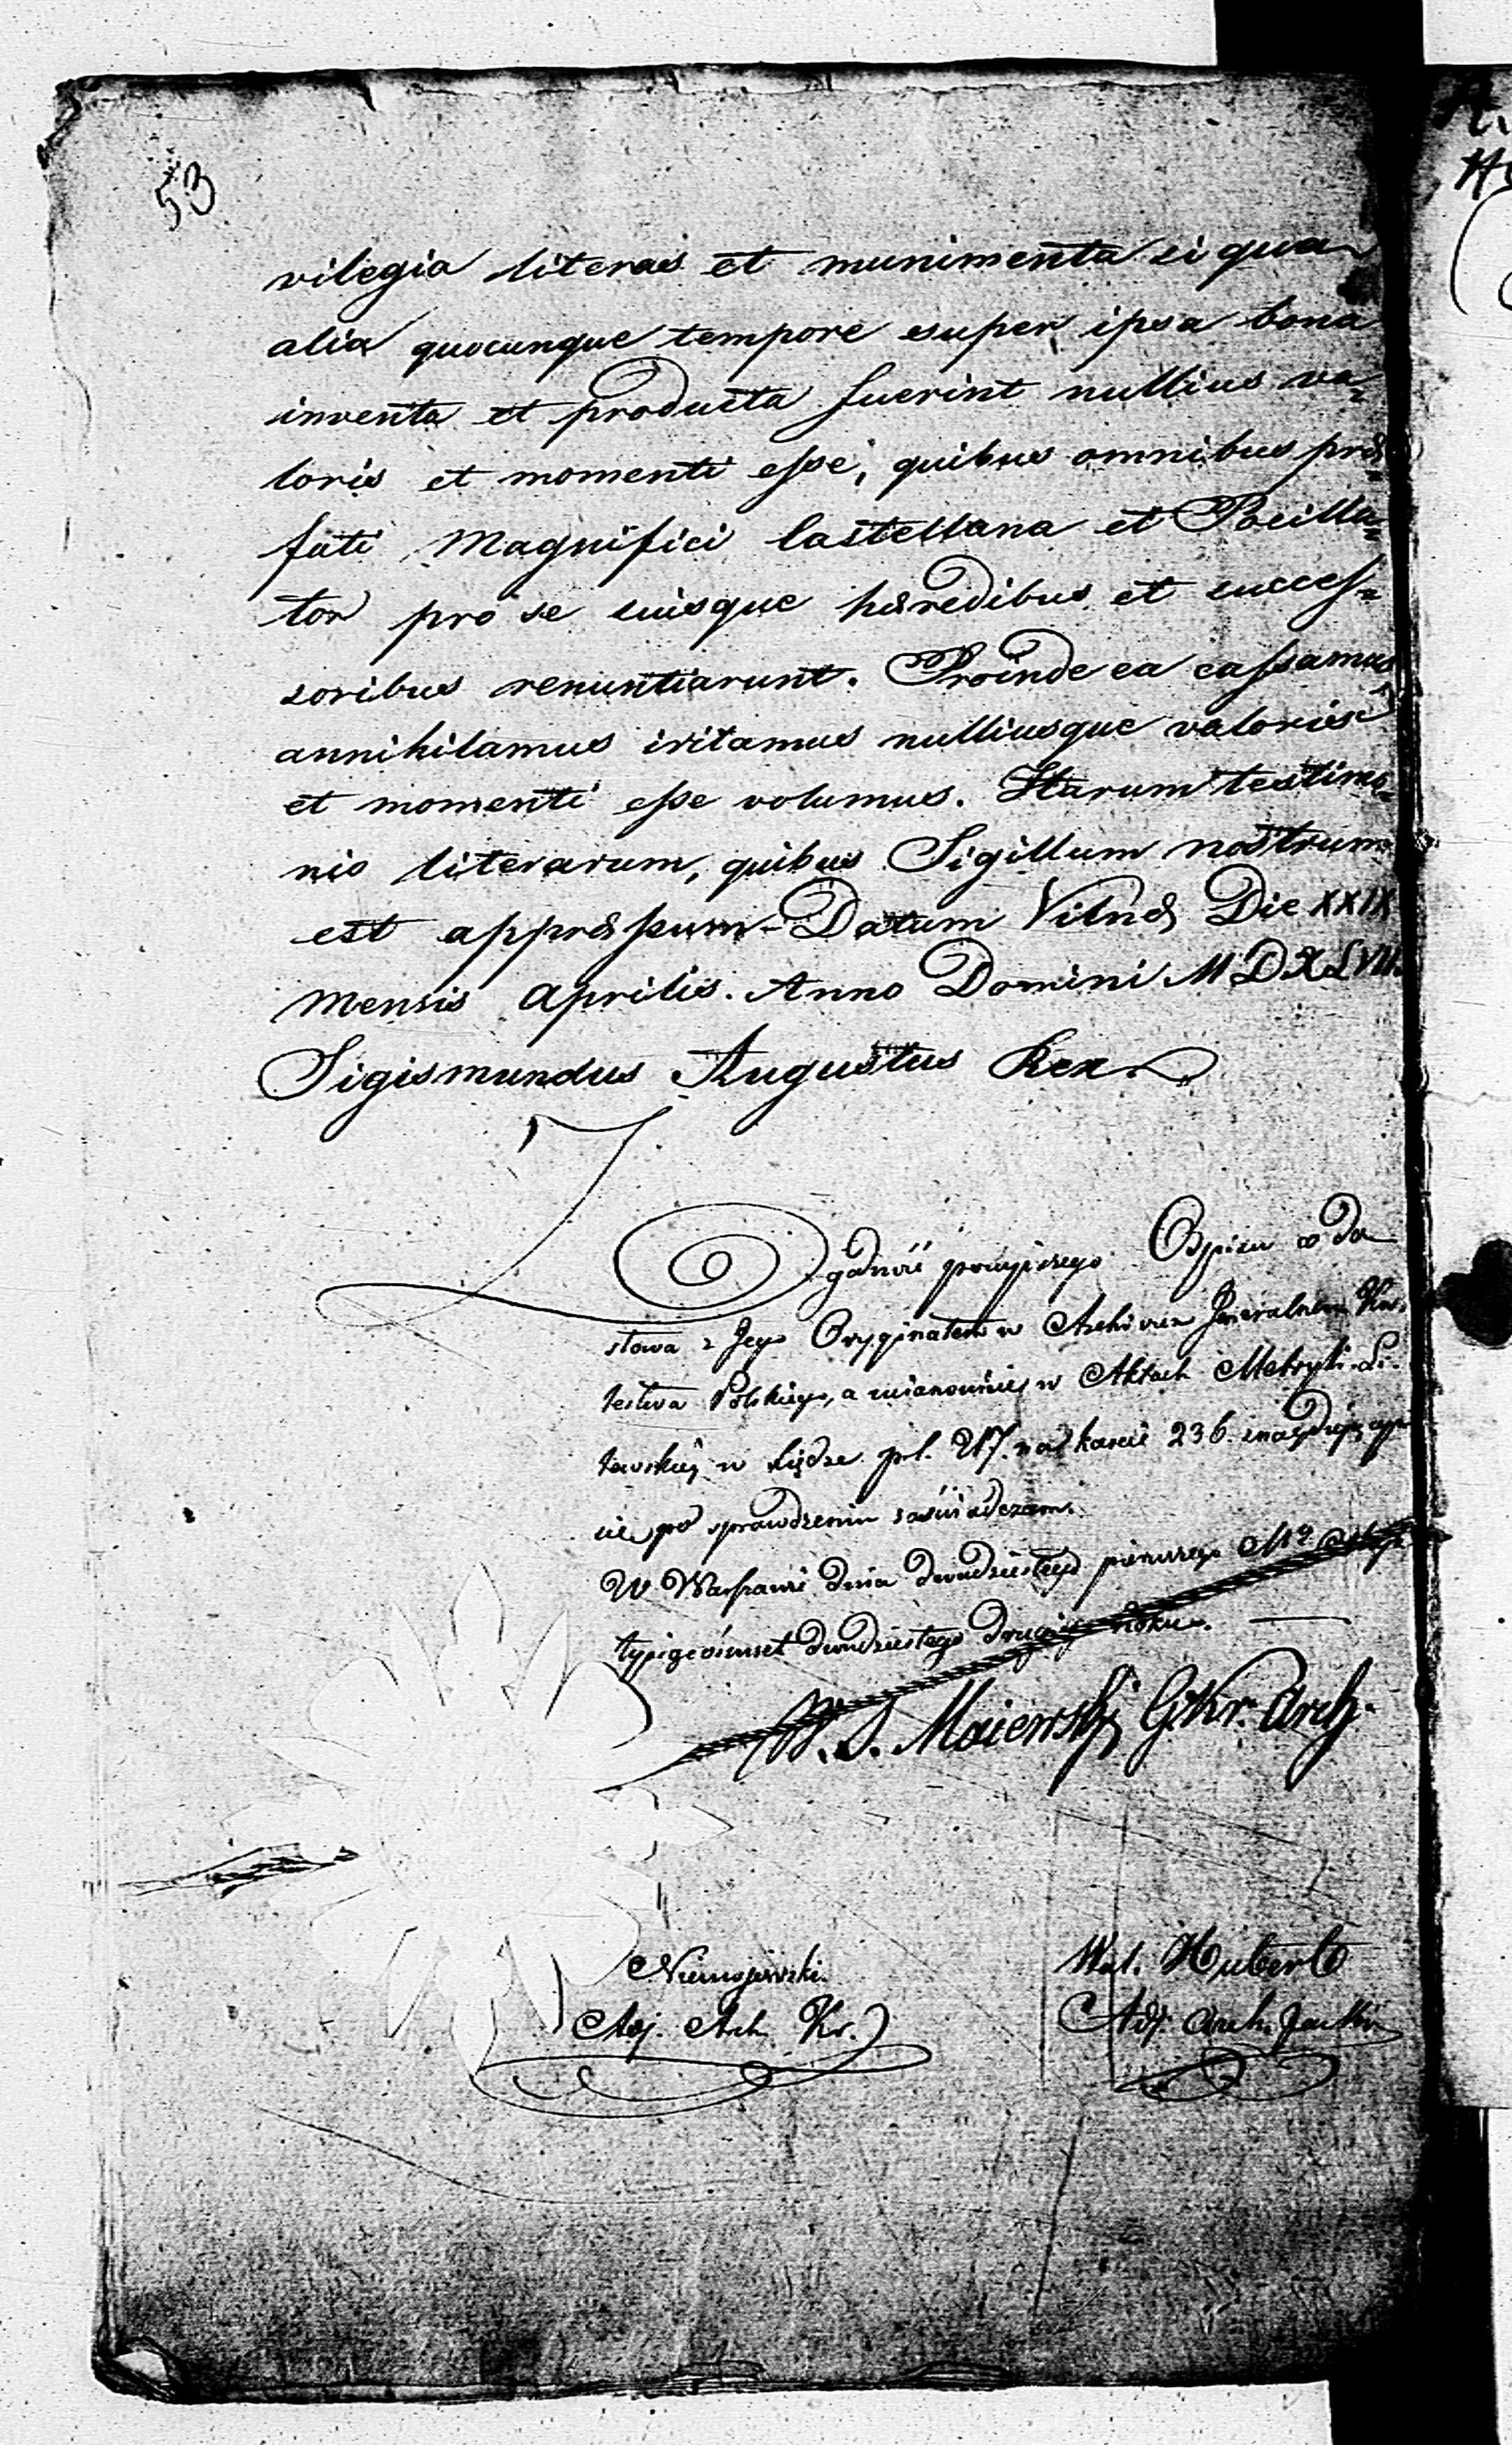 53
vilegia literas et munimenta si qua
alia quocunque tempore super ipsa bona
inventa et producta fuerint nullius va=
loris et momenti esse, quibus omnibus præ=
fati Magnifici Castellana et Pocilla=
tor pro se suisque hæredibus et succes=
soribus renuntiarunt. Proinde ea cassamus
annihilamus iritamus nulliusque valoris
et momenti esse volumus. Harum testimo=
nio literarum, quibus Sigillum nostrum
est appræssum - Datum Vilnæ Die XXIX
Mensis Aprilis. Anno Domini MDXLVII.
Sigismundus Augustus Rex.
Zgodność powyższego Opisu co do
słowa z Jego Oryginałem w Archiwum Jeneralnem Kró-
lestwa Polskiego, a mianowicie w Aktach Metryki Li-
tewskiej w księdze pol. 217. na karcie 236. znajdującym
się po sprawdzeniu zaświadczam.
W Warszawie dnia dwudziestego pierwszego Mca
tysiąc ośmset dwudziestego drugiego roku.
W. S. Maiewski G. Kr. Arch.
Niemojewski Wal. Hubert
Adj. Arch. Kr. Adj. Arch.